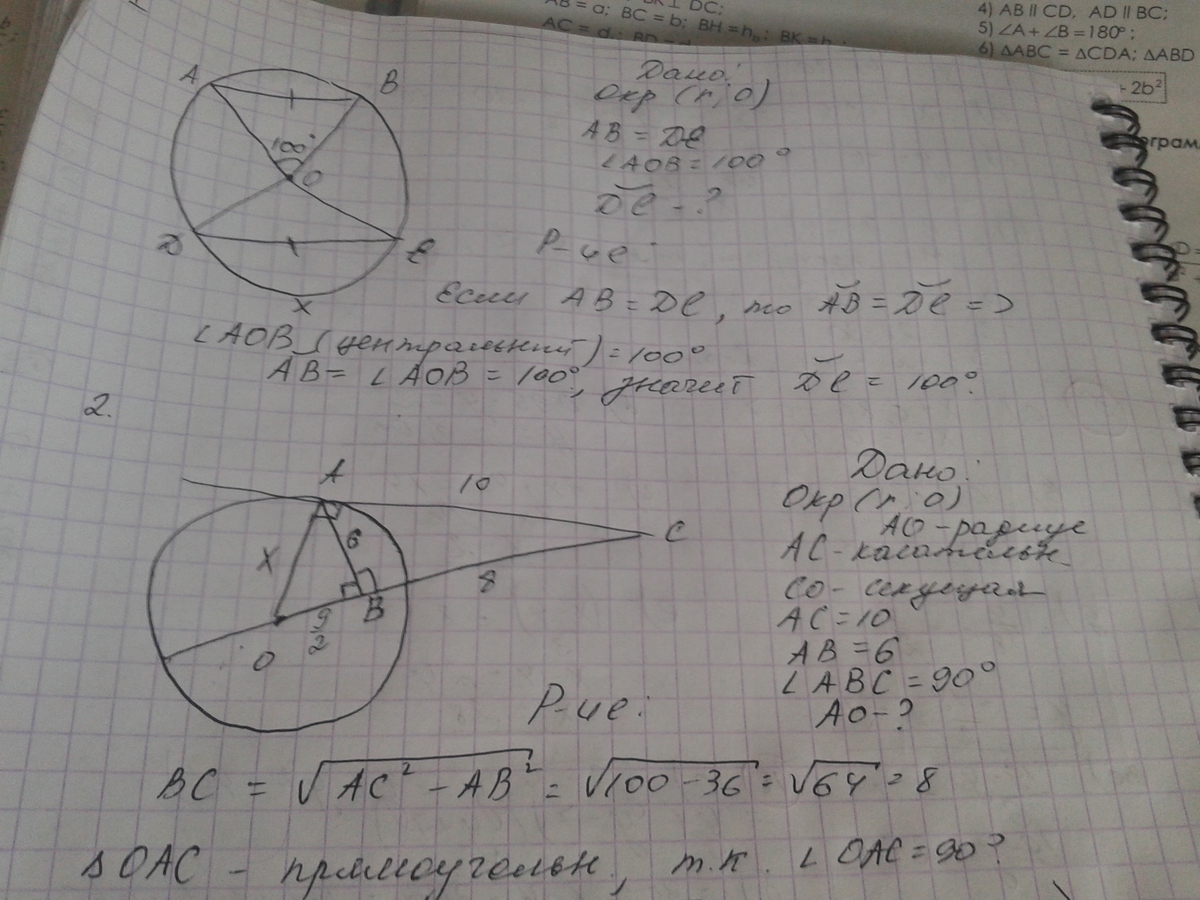 AB = a; BC = b; BH = hₐ; BK = h
4) AB || CD, AD || BC;
5) ∠A + ∠B = 180°;
6) ΔABC = ΔCDA; ΔABD
2b²
ограм
A
B
100°
O
D
C
X
Дано:
Окр (r; O)
AB = DC
∠AOB = 100°
D͡C - ?
Р-ие:
Если AB = DC, то A͡B = D͡C =>
∠AOB (центральный) = 100°
A͡B = ∠AOB = 100°, значит D͡C = 100°.
2.
A
10
C
X
6
8
B
9/2
O
Дано:
Окр (r; O)
AO - радиус
AC - касательн
CO - секущая
AC = 10
AB = 6
∠ABC = 90°
AO - ?
Р-ие:
BC = √AC² - AB² = √100 - 36 = √64 = 8
Δ OAC - прямоугольн, т.к. ∠OAC = 90°